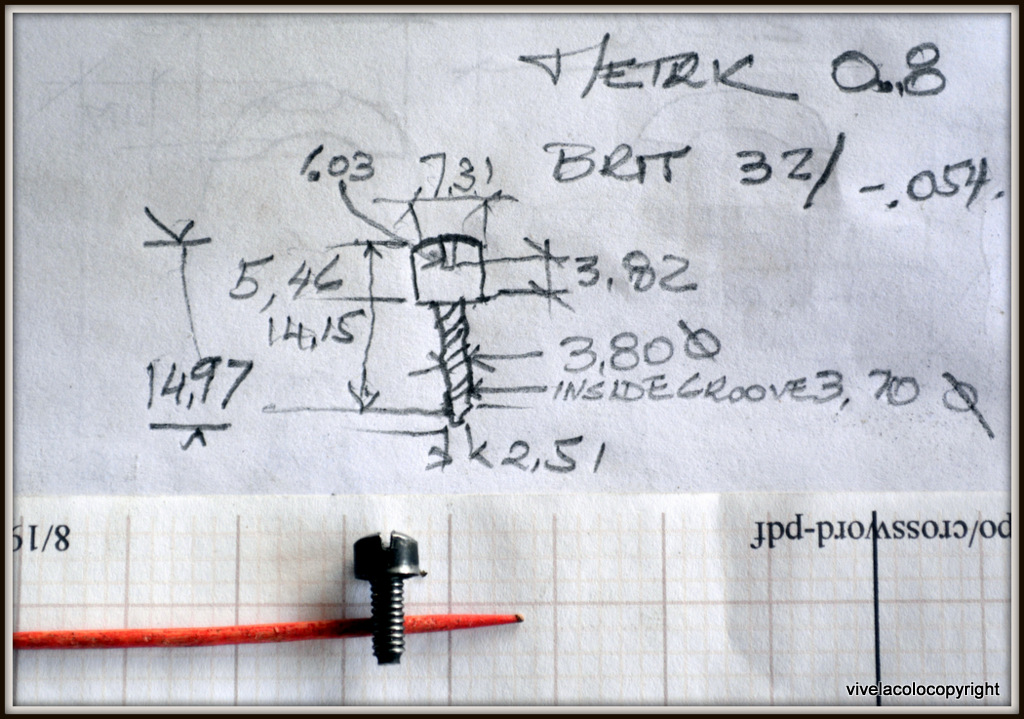 METRIC 0.8
BRIT 32/ -.054.
1.03 7,31
5,46 3,82
14,15
3,80 Ø
14,97
INSIDE GROOVE 3,70 Ø
2,51
8/19
po/crossword-pdf
vivelacolocopyright